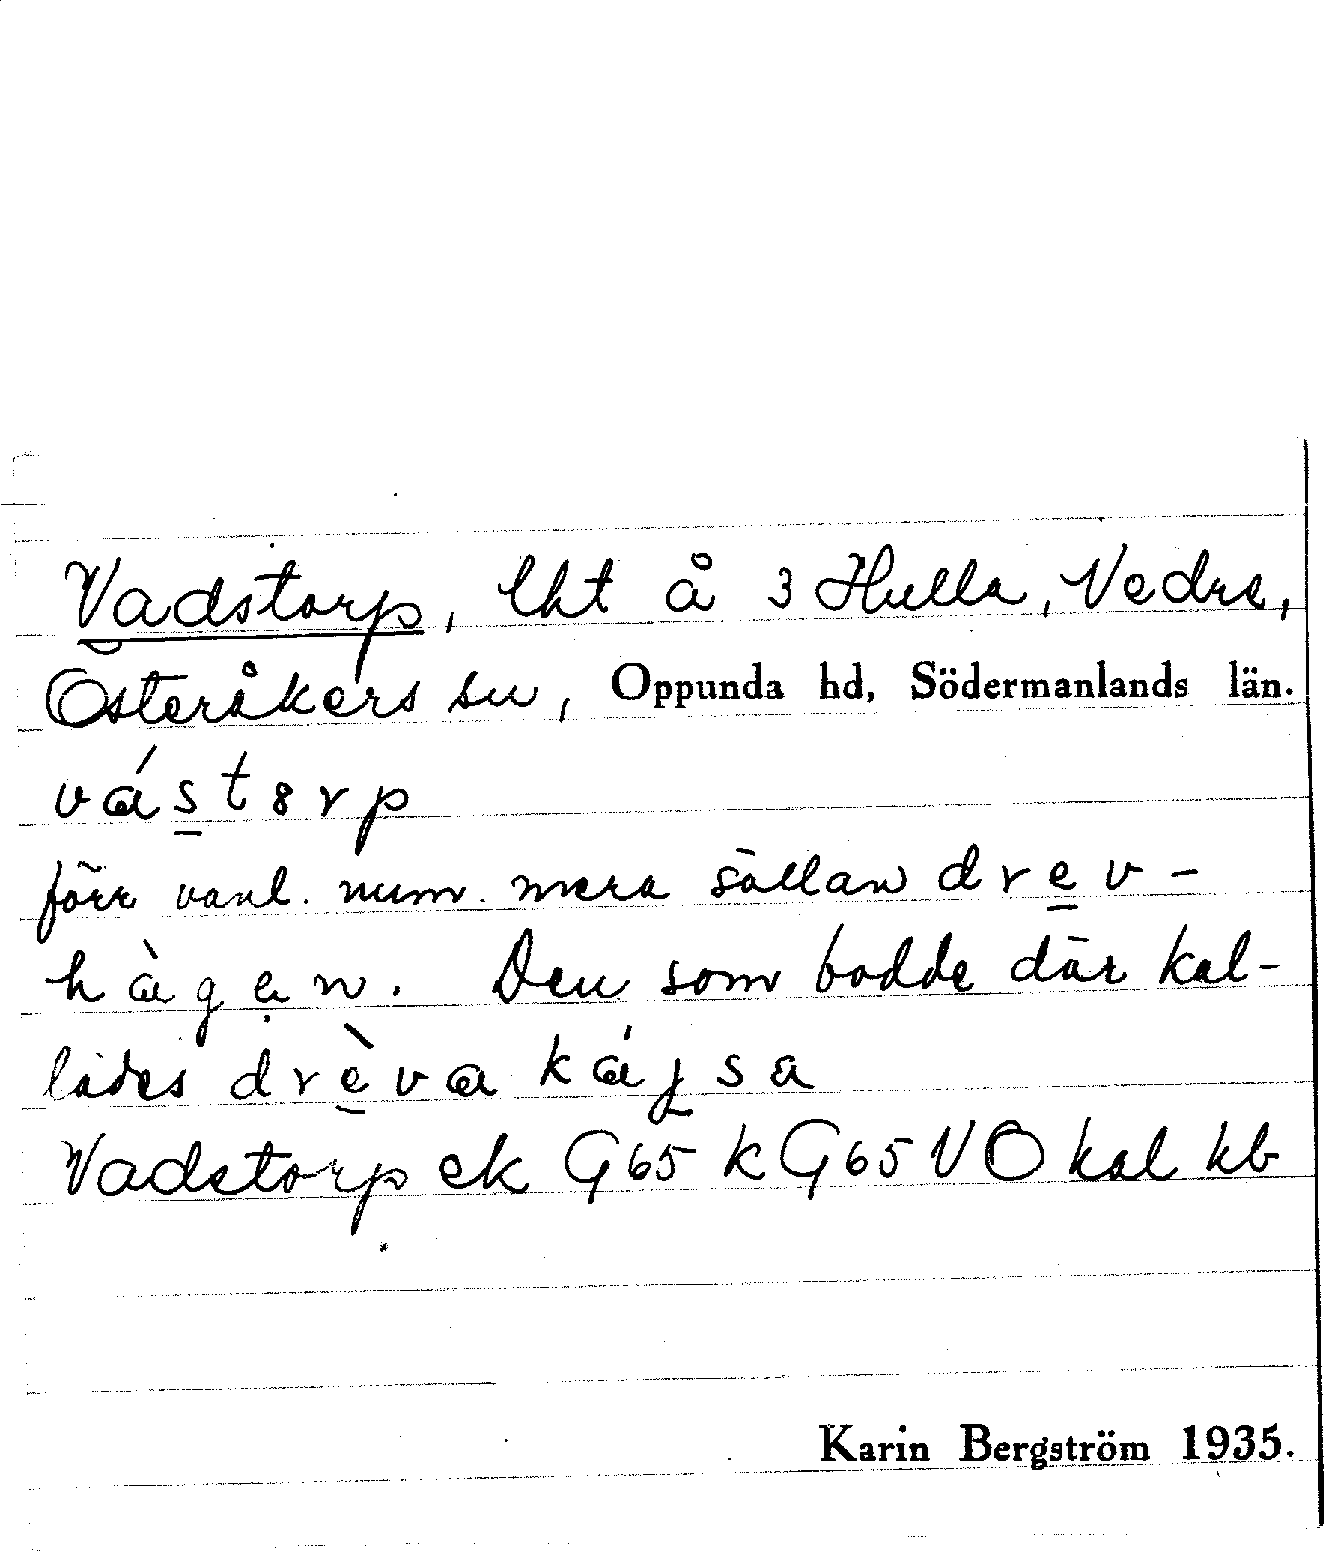 Vadstorp, lht å 3 Hulla, Vedre,
Österåkers sn, Oppunda hd, Södermanlands län.
vástorp
förr vanl. num. mera sällan drev-
hàgen. Den som bodde där kal-
lades drèva kájsa
Vadstorp ek G65 k G65 VÖ kal kb
Karin Bergström 1935.